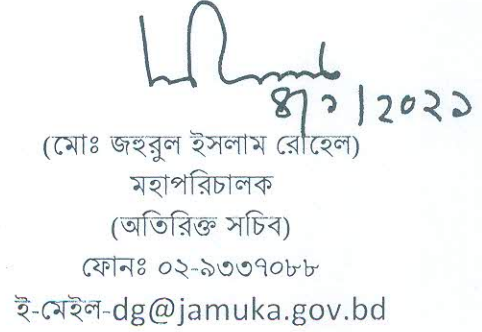 ৪/১/২০২১
(মোঃ জহুরুল ইসলাম রোহেল)
মহাপরিচালক
(অতিরিক্ত সচিব)
ফোনঃ ০২-৯৩৩৭০৮৮
ই-মেইল-dg@jamuka.gov.bd